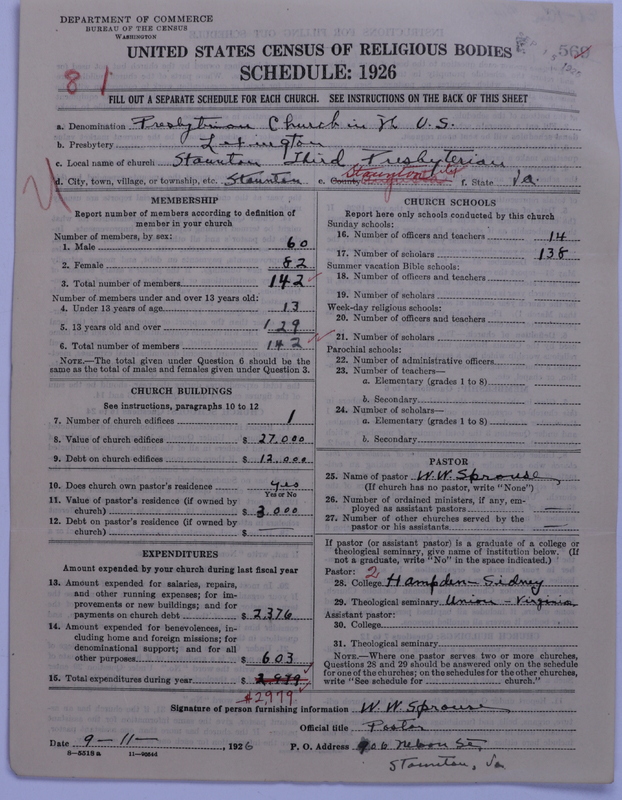 DEPARTMENT OF COMMERCE
BUREAU OF THE CENSUS
WASHINGTON
UNITED STATES CENSUS OF RELIGIOUS BODIES
SCHEDULE: 1926
569
8 1
FILL OUT A SEPARATE SCHEDULE FOR EACH CHURCH. SEE INSTRUCTIONS ON THE BACK OF THIS SHEET
a. Denomination Presbyterian Church in the U.S.
b. Presbytery Lexington
c. Local name of church Staunton Third Presbyterian
d. City, town, village, or township, etc. Staunton e. County Staunton City f. State Va.
MEMBERSHIP
Report number of members according to definition of
member in your church
Number of members, by sex:
1. Male 60
2. Female 82
3. Total number of members 142
Number of members under and over 13 years old:
4. Under 13 years of age 13
5. 13 years old and over 129
6. Total number of members 142
NOTE.—The total given under Question 6 should be the
same as the total of males and females given under Question 3.
CHURCH BUILDINGS
See instructions, paragraphs 10 to 12
7. Number of church edifices 1
8. Value of church edifices $ 27,000
9. Debt on church edifices $ 12,000
10. Does church own pastor's residence yes
Yes or No
11. Value of pastor's residence (if owned by
church) $ 3,000
12. Debt on pastor's residence (if owned by
church) $ —
EXPENDITURES
Amount expended by your church during last fiscal year
13. Amount expended for salaries, repairs,
and other running expenses; for im-
provements or new buildings; and for
payments on church debt $ 2376
14. Amount expended for benevolences, in-
cluding home and foreign missions; for
denominational support; and for all
other purposes $ 603
15. Total expenditures during year $ 2,979
$2979
CHURCH SCHOOLS
Report here only schools conducted by this church
Sunday schools:
16. Number of officers and teachers 14
17. Number of scholars 138
Summer vacation Bible schools:
18. Number of officers and teachers
19. Number of scholars
Week-day religious schools:
20. Number of officers and teachers
21. Number of scholars
Parochial schools:
22. Number of administrative officers
23. Number of teachers—
a. Elementary (grades 1 to 8)
b. Secondary
24. Number of scholars—
a. Elementary (grades 1 to 8)
b. Secondary
PASTOR
25. Name of pastor W. W. Sprouse
(If church has no pastor, write "None")
26. Number of ordained ministers, if any, em-
ployed as assistant pastors —
27. Number of other churches served by the
pastor or his assistants —
If pastor (or assistant pastor) is a graduate of a college or
theological seminary, give name of institution below. (If
not a graduate, write "No" in the space indicated.)
Pastor: 2
28. College Hampden-Sidney
29. Theological seminary Union - Virginia
Assistant pastor:
30. College
31. Theological seminary
NOTE.—Where one pastor serves two or more churches,
Questions 28 and 29 should be answered only on the schedule
for one of the churches; on the schedules for the other churches,
write "See schedule for church."
Signature of person furnishing information W. W. Sprouse
Official title Pastor
Date 9-11-, 1926 P. O. Address 906 Nelson St,
8-5519a 11-
Staunton, Va